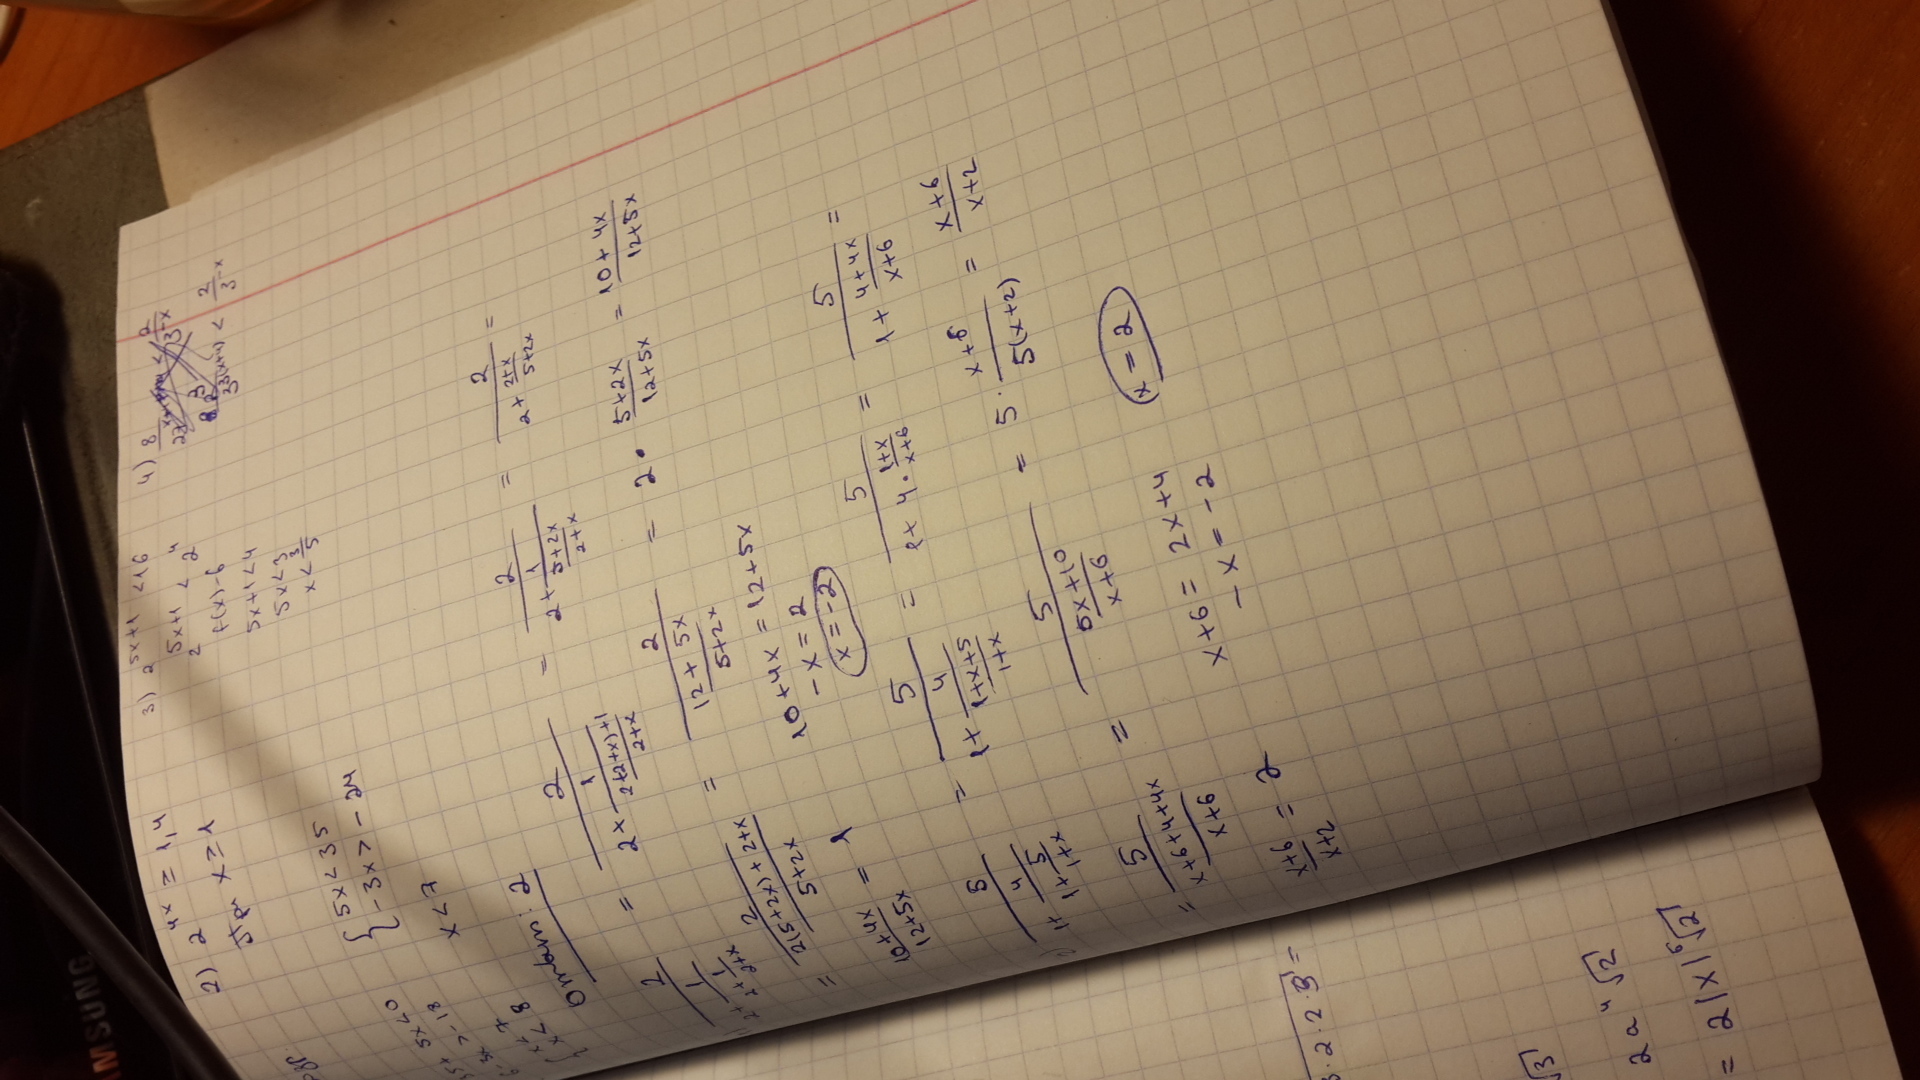 SAMSUNG
2) 2^{4x} = 14
x = 1
{ 5x < 35
-3x > -24
x < 7
{ x < 7
x < 8
3) 2^{5x+1} < 16
2^{5x+1} < 2^4
f(x) - 6
5x+1 < 4
5x < 3
x < 3/5
4)
Ответ: 2
2/(2+1/(2+1/(2+x))) = 2/(2+1/((2(2+x)+1)/(2+x))) = 2/(2+1/((5+2x)/(2+x))) = 2/(2+(2+x)/(5+2x)) =
= 2/((2(5+2x)+2+x)/(5+2x)) = 2/((12+5x)/(5+2x)) = 2 · (5+2x)/(12+5x) = (10+4x)/(12+5x)
(10+4x)/(12+5x) = 1
10+4x = 12+5x
-x = 2
x = -2
5/(1+4/(1+5/(1+x))) = 5/(1+4/((1+x+5)/(1+x))) = 5/(1+4·(1+x)/(x+6)) = 5/(1+(4+4x)/(x+6)) =
= 5/((x+6+4+4x)/(x+6)) = 5/((5x+10)/(x+6)) = 5 · (x+6)/(5(x+2)) = (x+6)/(x+2)
(x+6)/(x+2) = 2
x+6 = 2x+4
-x = -2
x = 2
· 2 · 2 · 3 =
√3
2a ⁴√2
= 2|x| ⁶√2